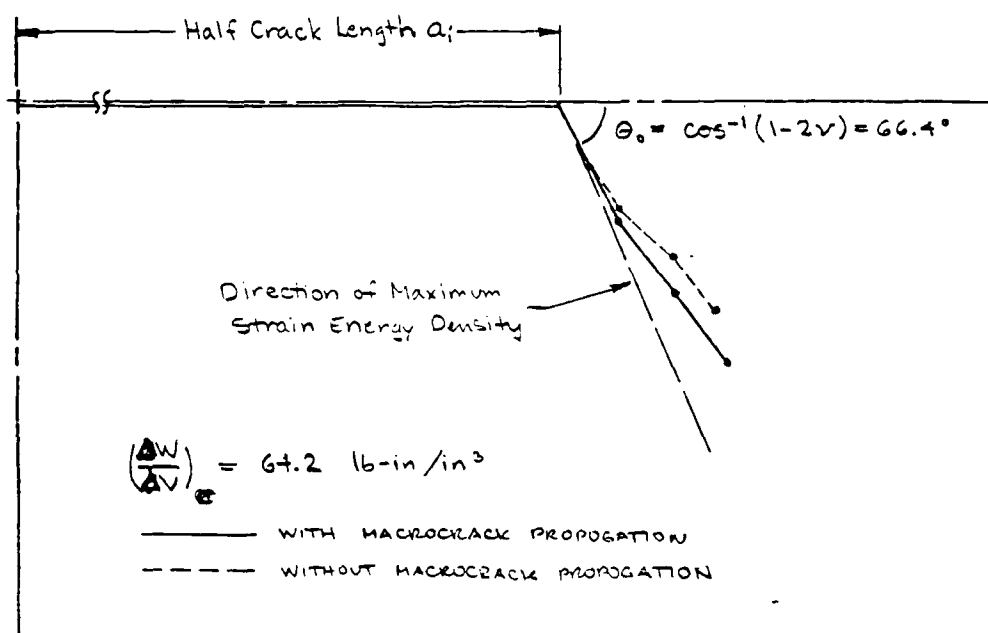 Half Crack Length aᵢ
θ₀ = cos⁻¹(1-2ν) = 66.4°
Direction of Maximum
Strain Energy Density
(ΔW/ΔV)c = 64.2 lb-in/in³
WITH MACROCRACK PROPOGATION
WITHOUT MACROCRACK PROPOGATION